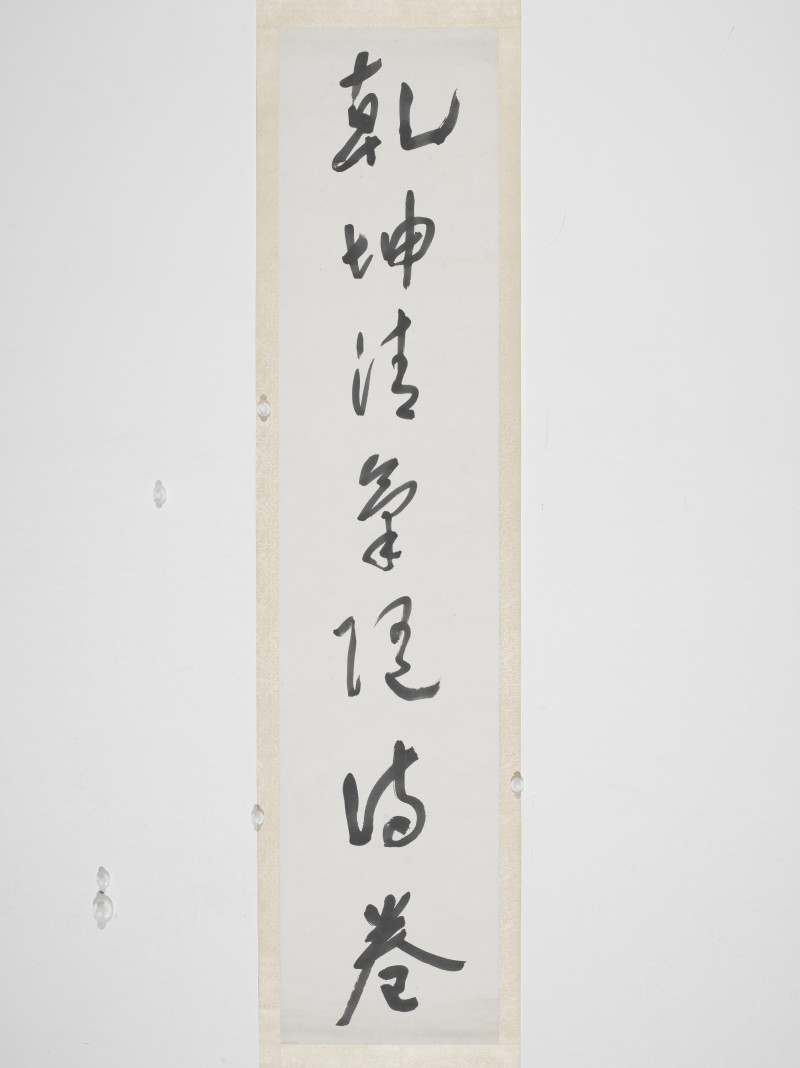 乾坤清氣隨詩卷